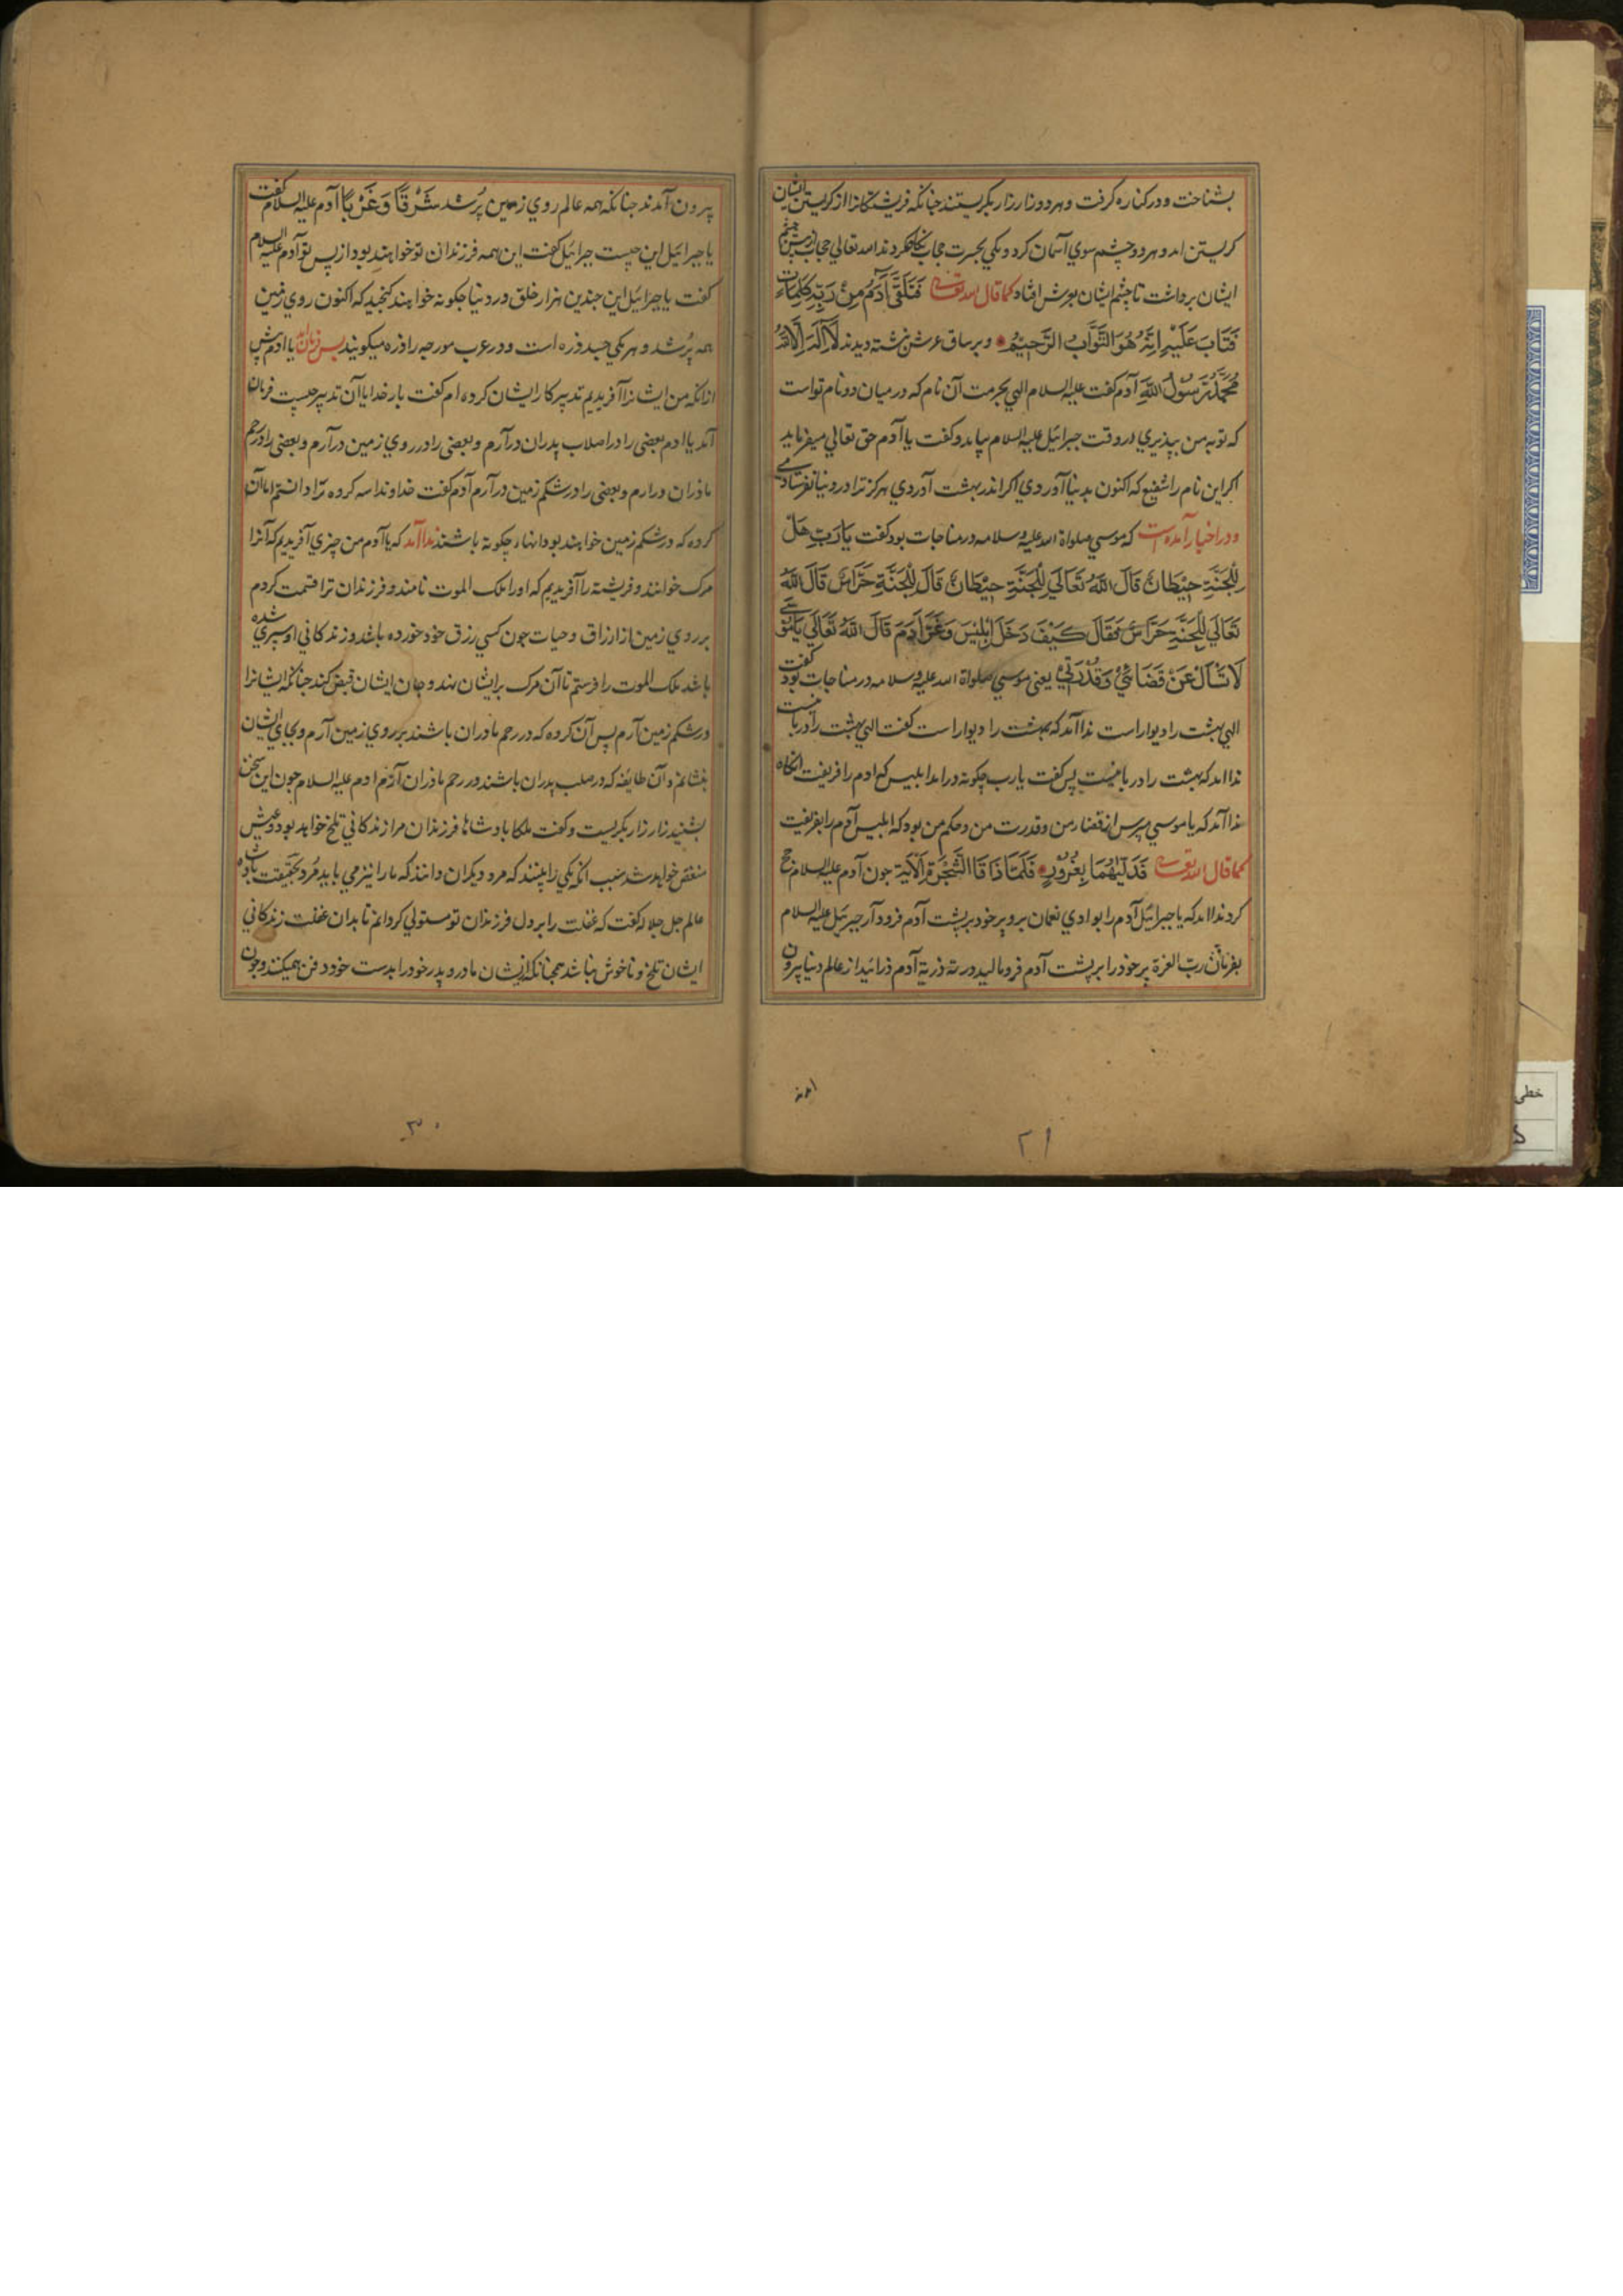 بشناخت و در کناره گرفت و هر دو زار زار بکریستند جنانکه فریشتکانرا از کریستن ایشان
کریستن امد و هر دو چشم سوی آسمان کرد و یکی بحسرت حجاب نکاه کردند الله تعالی حجاب از پیش چشم
ایشان برداشت تا چشم ایشان بعرش افتاد کما قال الله تعالی فَتَلَقَّىٰ آدَمُ مِنْ رَبِّهِ كَلِمَاتٍ
فَتَابَ عَلَيْهِ اِنَّهُ هُوَ التَّوَّابُ الرَّحِيمُ و بر ساق عرش نبشته دیدند لَا اِلٰهَ اِلَّا اللهُ
مُحَمَّدٌ رَسُولُ اللهِ آدم کفت علیه السلام الهی بحرمت آن نام که در میان دو نام تو است
که توبه من بپذیری در وقت جبرائیل علیه السلام بیامد و کفت یا آدم حق تعالی میفرماید
اکر این نام را شفیع که اکنون بدنیا آوردی اکر اندر بهشت آوردی هرکز ترا در دنیا نفرستادمی
و در اخبار آمده است که موسی صلواة الله علیه و سلامه در مناجات بود کفت یَا رَبِّ هَلْ
لِلْجَنَّةِ حِيْطَانٌ قَالَ اللهُ تَعَالَی لِلْجَنَّةِ حِيْطَانٌ قَالَ لِلْجَنَّةِ حَرَّاسٌ قَالَ اللهُ
تَعَالَی لِلْجَنَّةِ حَرَّاسٌ فَقَالَ كَيْفَ دَخَلَ اِبْلِيْسَ وَغَرَّ آدَمَ قَالَ اللهُ تَعَالَی يَا مُوْسَی
لَا تَسْأَلْ عَنْ قَضَائِيْ وَقُدْرَتِيْ یعنی موسی صلواة الله علیه و سلامه در مناجات بود کفت
الهی بهشت را دیوار است ندا آمد که بهشت را دیوار است کفت الهی بهشت را دربانست
ندا امد که بهشت را دربانیست پس کفت یارب چکونه در امد ابلیس که ادم را فریفت آنکاه
ندا آمد که یا موسی مپرس از قضاء من و قدرت من و حکم من بود که ابلیس آدم را بفریفت
کما قال الله تعالی فَدَلَّيٰهُمَا بِغُرُوْرٍ فَلَمَّا ذَاقَا الشَّجَرَةَ الْاٰيَة جون آدم علیه السلام حج
کرد ندا امد که یا جبرائیل آدم را بوادی نعمان برو پر خود بر پشت آدم فرود آر جبرئیل علیه السلام
بفرمان ربّ العزة پر خود را بر پشت آدم فرو مالید ذریة آدم از عالم دنیا بیرون
بیرون آمدند جنانکه همه عالم روی زمین پُر شد شَرْقًا وَغَرْبًا آدم علیه السلام کفت
یا جبرائیل این چیست جبرائیل کفت این همه فرزندان تو خواهند بود از پس تو آدم علیه السلام
کفت یا جبرائیل این جندین هزار خلق در دنیا چکونه خواهند کنجید که اکنون روی زمین
همه پُر شد و هر یکی جسد ذره است و در عرب مورجه را ذره میکویند پس فرمان امد یا ادم پیش
ازانکه من ایشانرا آفریدیم تدبیر کار ایشان کرده ام کفت بار خدایا آن تدبیر چیست فرمان
آمد یا ادم بعضی را در اصلاب پدران درآرم و بعضی را در روی زمین درآرم و بعضی را در رحم
ماذران درارم و بعضی را در شکم زمین درآرم آدم کفت خداوندا سه کروه ترا دانستم اما آن
کروه که در شکم زمین خواهند بود انها چکونه باشند ندا آمد که یا آدم من چیزی آفریدیم که آنرا
مرک خوانند و فریشته را آفریدیم که او را ملک الموت نامند و فرزندان ترا قسمت کردم
بر روی زمین از ارزاق و حیات جون کسی رزق خود خورده باشد و زندکانی او سپری شده
باشد ملک الموت را فرستم تا آن مرک بر ایشان نهد و جان ایشان قبض کند جنانکه ایشانرا
در شکم زمین آرم پس آن کروه که در رحم مادران باشند بر روی زمین آرم و بجای ایشان
بنشانم و آن طائفه که در صلب پدران باشند در رحم ماذران آرم ادم علیه السلام جون این سخن
بشنید زار زار بکریست و کفت ملکا بادشاها فرزندان مرا زندکانی تلخ خواهد بود و عیش
منغص خواهد شد سبب انکه یکی را بینند که مرد دیکران دانند که ما را نیز می باید مُرد بحقیقت بادشاه
عالم جل جلاله کفت که غفلت را بر دل فرزندان تو مستولی کردانم تا بدان غفلت زندکانی
ایشان تلخ و ناخوش نباشد همجنانکه ایشان مادر و پدر خود را بدست خود دفن همیکنند و جون
امر
۲۱
۳۰
خطی